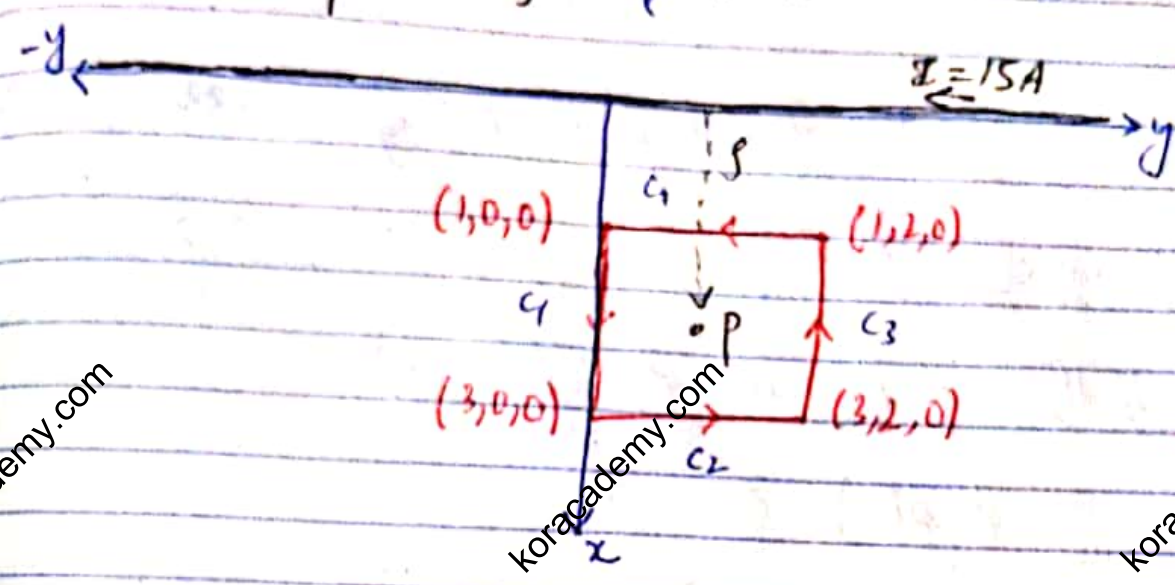 -y
I = 15A
y
ρ
C1
(1,0,0)
(1,2,0)
C4
.P
C3
(3,0,0)
(3,2,0)
C2
x
emy.com
koracademy.com
kora